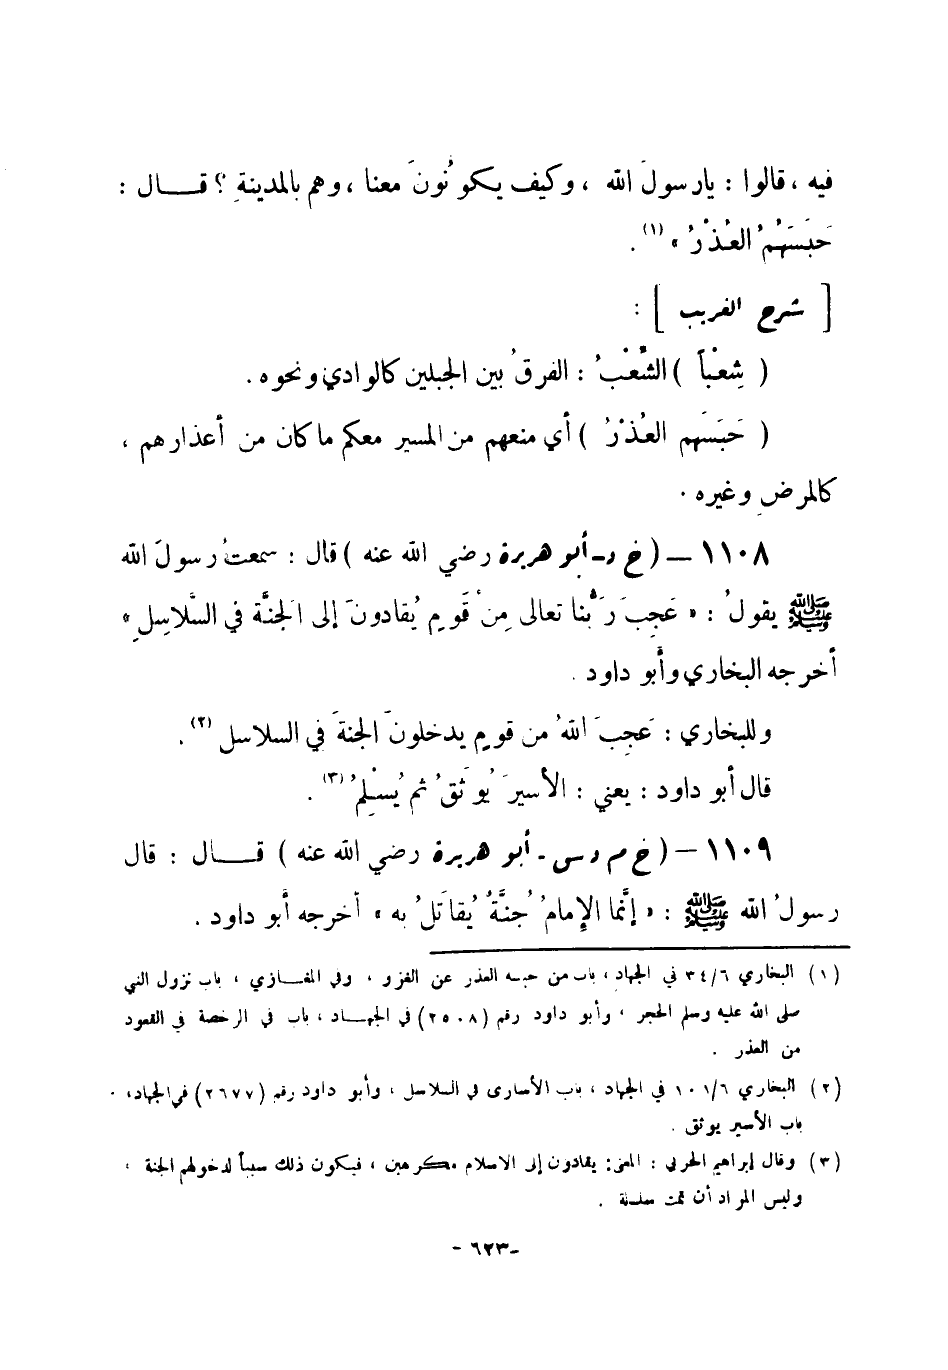 فيه ، قالوا : يا رسولَ الله ، وكيف يكونُونَ معنا ، وهم بالمدينةِ ؟ قـــال :
حَبَسَهُمُ العُذْرُ » (١) .
[ شرح الغريب ] :
( شِعْباً ) الشِّعْبُ : الفرقُ بين الجبلين كالوادي ونحوه .
( حَبَسَهم العُذْرُ ) أي منعهم من المسير معكم ما كان من أعذارهم ،
كالمرضِ وغيره .
١١٠٨ – ( خ د - أبو هريرة رضي الله عنه ) قال : سمعتُ رسولَ الله
ﷺ يقولُ : « عَجِبَ رَبُّنا تعالى مِنْ قَومٍ يُقادونَ إلى الجَنَّة في السَّلاسِلِ »
أخرجه البخاري وأبو داود .
وللبخاري : عَجِبَ اللهُ من قومٍ يدخلونَ الجنةَ في السلاسل (٢) .
قال أبو داود : يعني : الأسيرَ يُوثَقُ ثم يُسْلِمُ (٣) .
١١٠٩ – ( خ م د س - أبو هريرة رضي الله عنه ) قـــال : قال
رسولُ الله ﷺ : « إنَّما الإمامُ جُنَّةٌ يُقاتَلُ به » أخرجه أبو داود .
(١) البخاري ٣٤/٦ في الجهاد ، باب من حبسه العذر عن الغزو ، وفي المغــازي ، باب نزول النبي
صلى الله عليه وسلم الحجر ، وأبو داود رقم (٢٥٠٨) في الجهــاد ، باب في الرخصة في القعود
من العذر .
(٢) البخاري ١٠١/٦ في الجهاد ، باب الأسارى في السلاسل ، وأبو داود رقم (٢٦٧٧) في الجهاد ،
باب الأسير يوثق .
(٣) وقال إبراهيم الحربي : المعنى : يقادون إلى الاسلام مكرهين ، فيكون ذلك سبباً لدخولهم الجنة ،
وليس المراد أن ثمت سلسلة .
- ٦٢٣ -